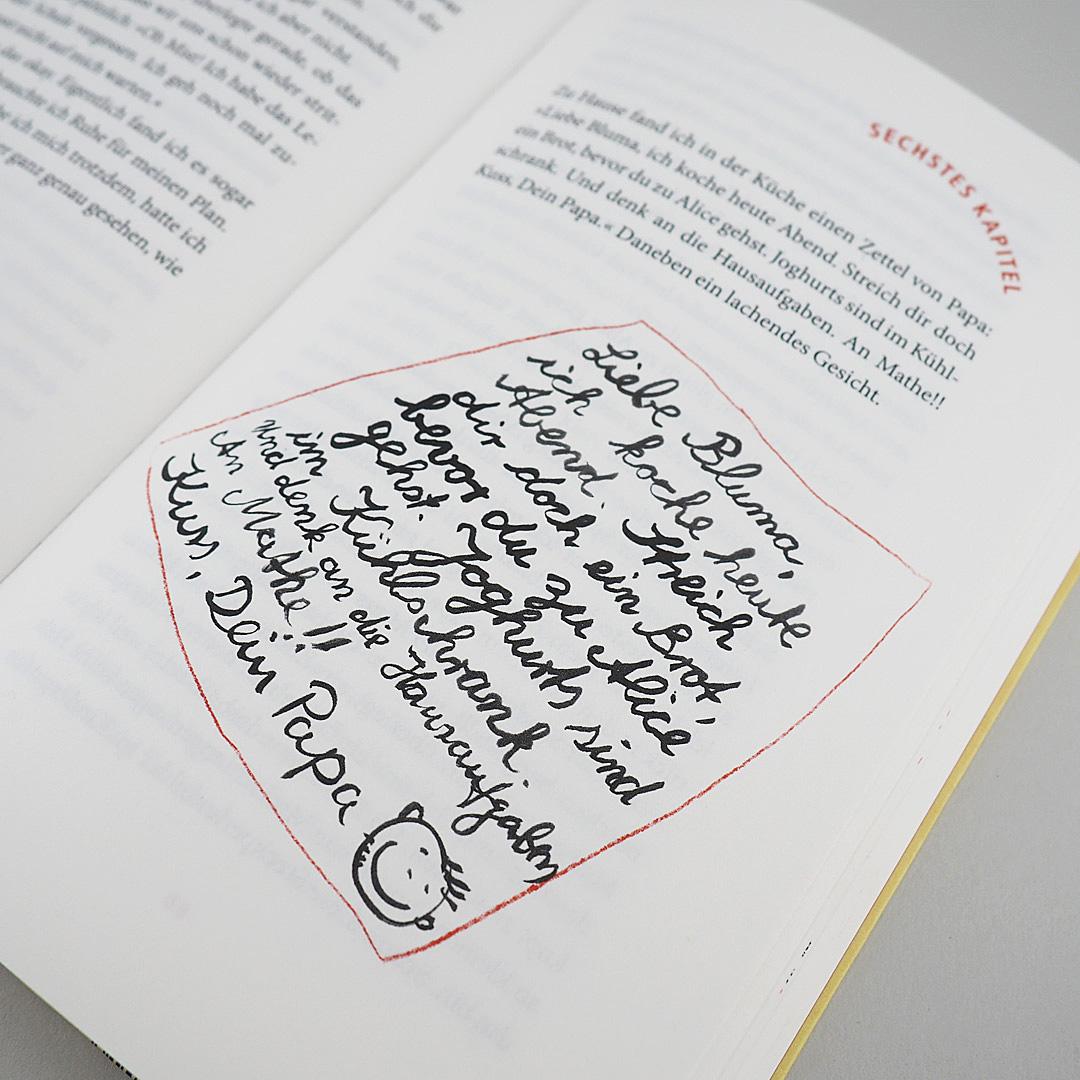 verstanden,
ich aber nicht.
gerade, ob das
wir uns schon wieder strit-
»Oh Mist! Ich habe das Le-
Schule vergessen. Ich geh noch mal zu-
nicht auf mich warten.«
das okay. Eigentlich fand ich es sogar
brauchte ich Ruhe für meinen Plan.
ich mich trotzdem, hatte ich
ganz genau gesehen, wie
SECHSTES KAPITEL
Zu Hause fand ich in der Küche einen Zettel von Papa:
»Liebe Bluma, ich koche heute Abend. Streich dir doch
ein Brot, bevor du zu Alice gehst. Joghurts sind im Kühl-
schrank. Und denk an die Hausaufgaben. An Mathe!!
Kuss, Dein Papa.« Daneben ein lachendes Gesicht.
Liebe Bluma,
ich koche heute
Abend. Streich
dir doch ein Brot,
bevor du zu Alice
gehst. Joghurts sind
im Kühlschrank.
Und denk an die Hausaufgaben
An Mathe!!
Kuss, Dein Papa